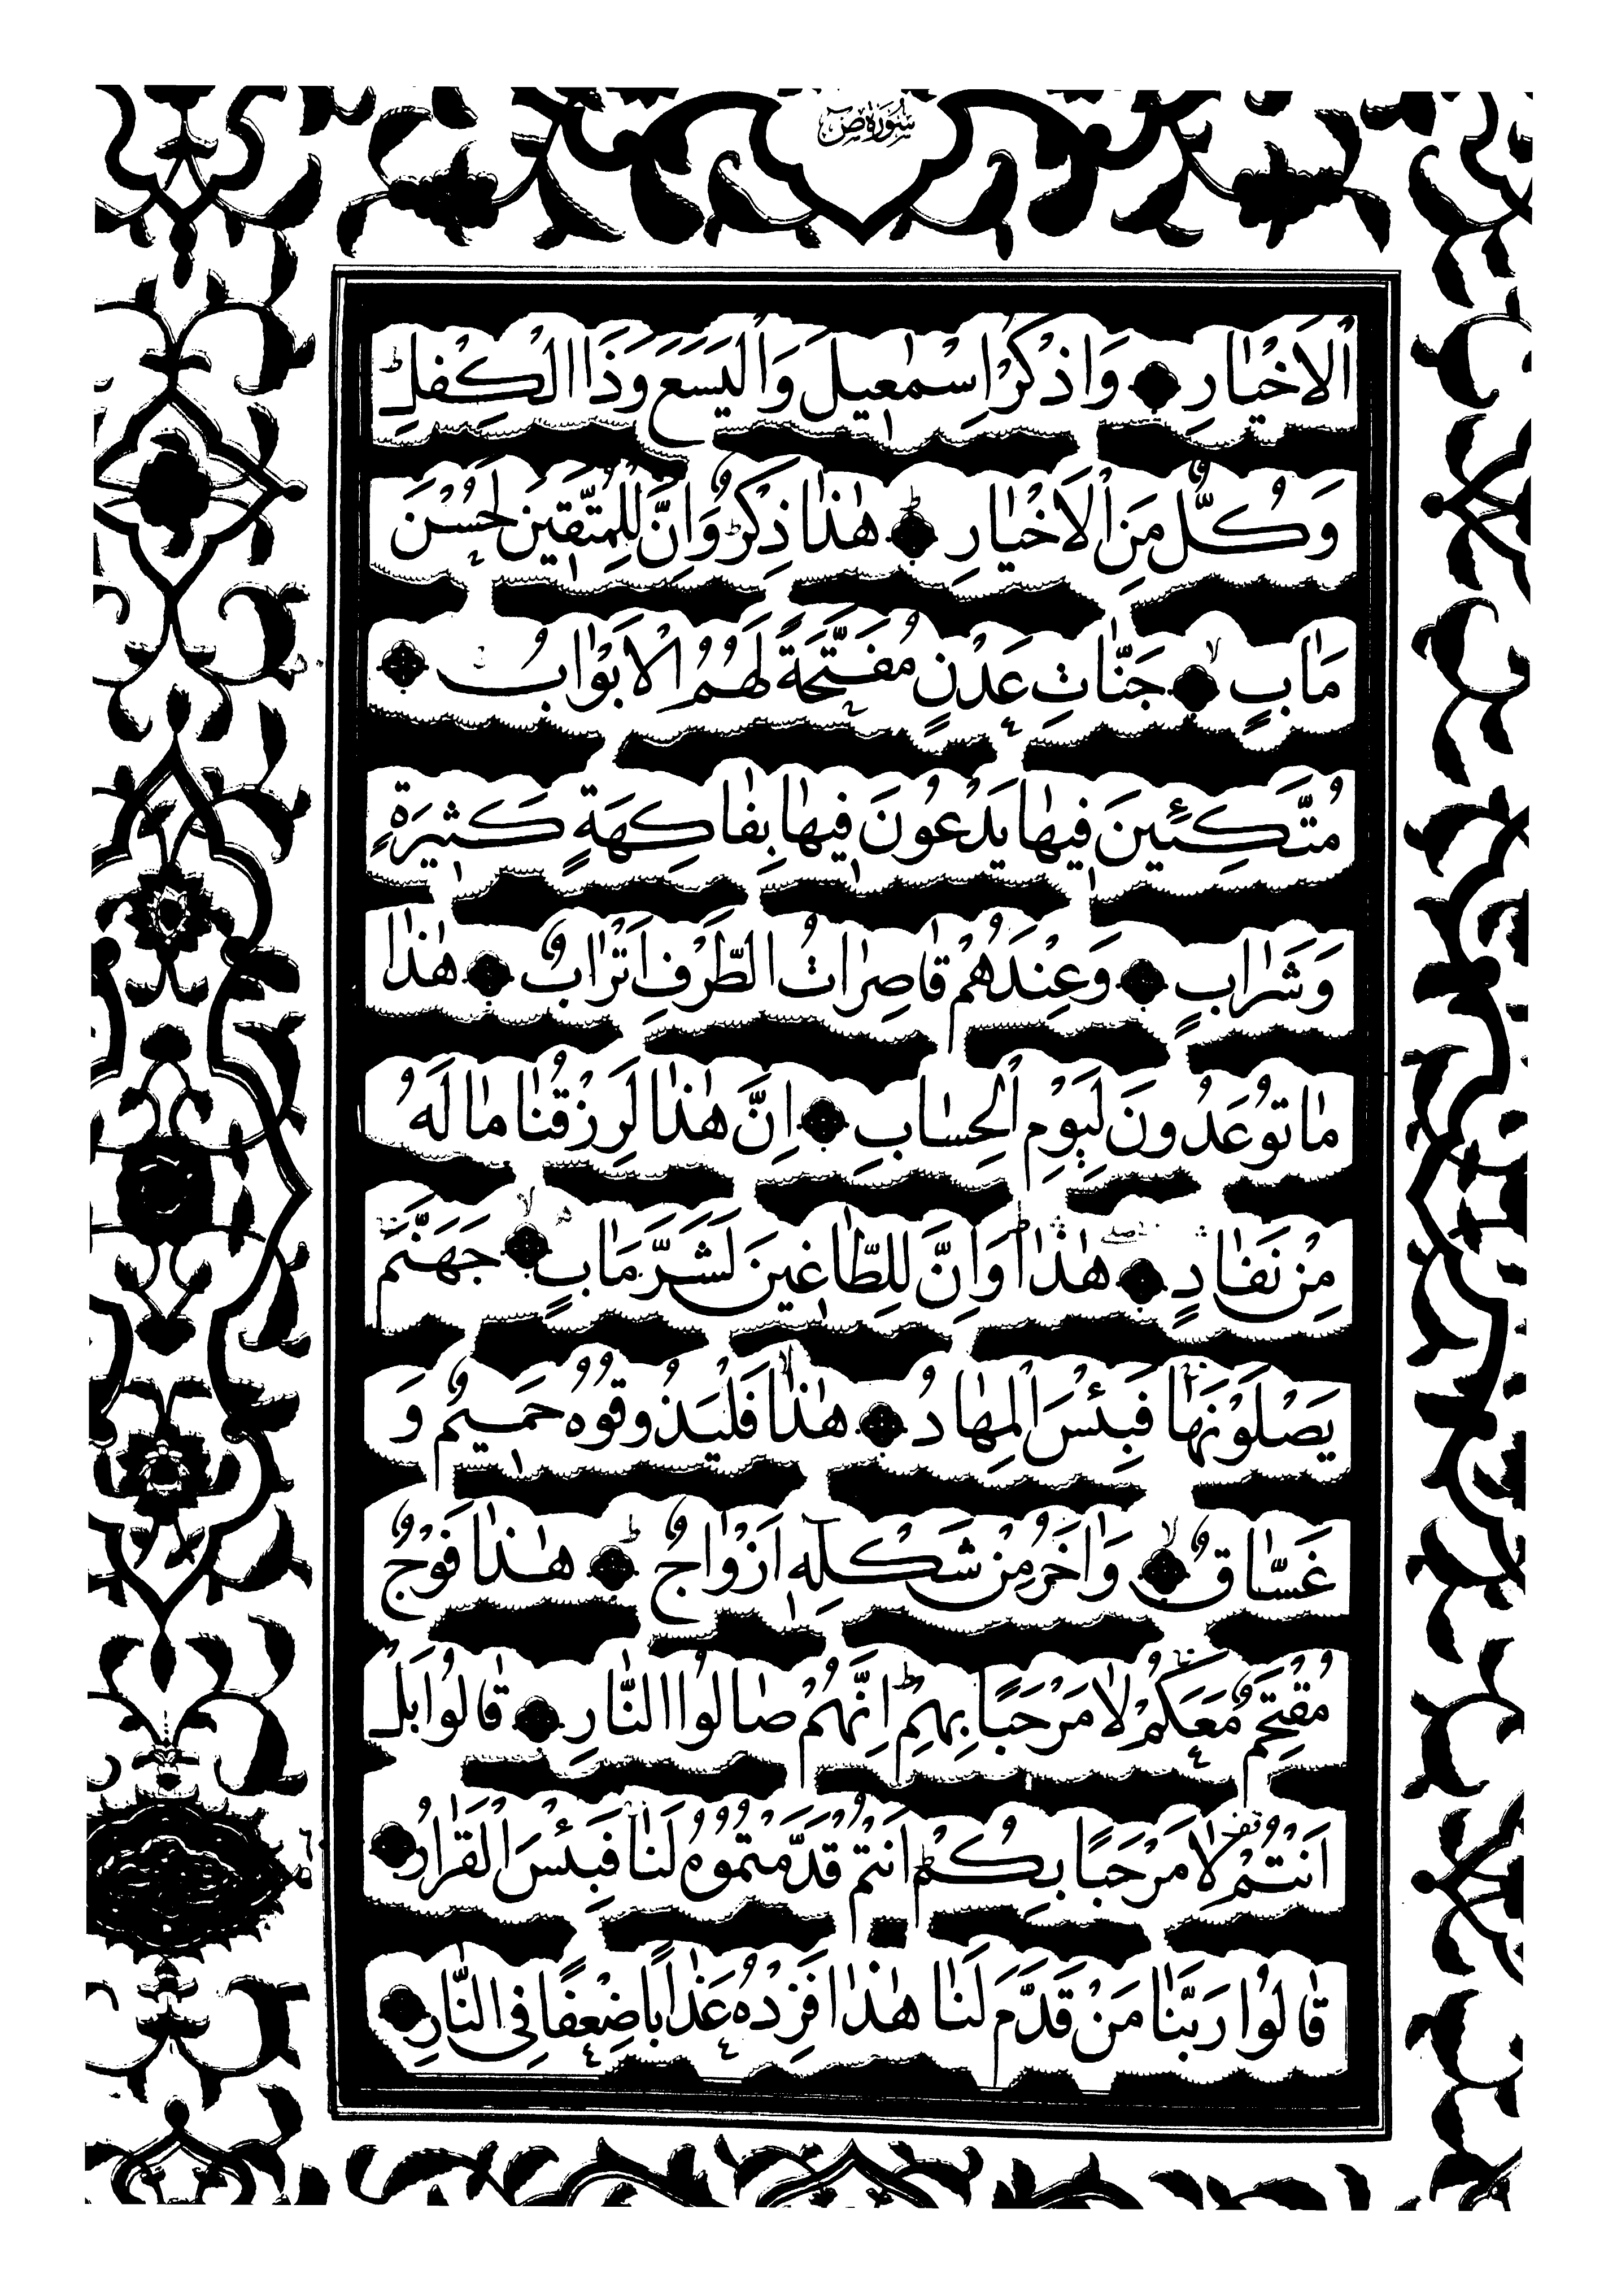 سُورَةُ صٓ
اَلْاَخْيَارِ وَاذْكُرْ اِسْمٰعِيلَ وَالْيَسَعَ وَذَا الْكِفْلِ ط
وَكُلٌّ مِنَ الْاَخْيَارِ ط هٰذَا ذِكْرٌ ط وَاِنَّ لِلْمُتَّقِينَ لَحُسْنَ
مَاٰبٍ لا جَنَّاتِ عَدْنٍ مُفَتَّحَةً لَهُمُ الْاَبْوَابُ
مُتَّكِئِينَ فِيهَا يَدْعُونَ فِيهَا بِفَاكِهَةٍ كَثِيرَةٍ
وَشَرَابٍ وَعِنْدَهُمْ قَاصِرَاتُ الطَّرْفِ اَتْرَابٌ هٰذَا
مَا تُوعَدُونَ لِيَوْمِ الْحِسَابِ اِنَّ هٰذَا لَرِزْقُنَا مَا لَهُ
مِنْ نَفَادٍ هٰذَا ط وَاِنَّ لِلطَّاغِينَ لَشَرَّ مَاٰبٍ لا جَهَنَّمَ
يَصْلَوْنَهَا فَبِئْسَ الْمِهَادُ هٰذَا لا فَلْيَذُوقُوهُ حَمِيمٌ وَ
غَسَّاقٌ لا وَاٰخَرُ مِنْ شَكْلِهِ اَزْوَاجٌ ط هٰذَا فَوْجٌ
مُقْتَحِمٌ مَعَكُمْ لَا مَرْحَبًا بِهِمْ ط اِنَّهُمْ صَالُوا النَّارِ قَالُوا بَلْ
اَنْتُمْ لَا مَرْحَبًا بِكُمْ ط اَنْتُمْ قَدَّمْتُمُوهُ لَنَا فَبِئْسَ الْقَرَارُ
قَالُوا رَبَّنَا مَنْ قَدَّمَ لَنَا هٰذَا فَزِدْهُ عَذَابًا ضِعْفًا فِي النَّارِ